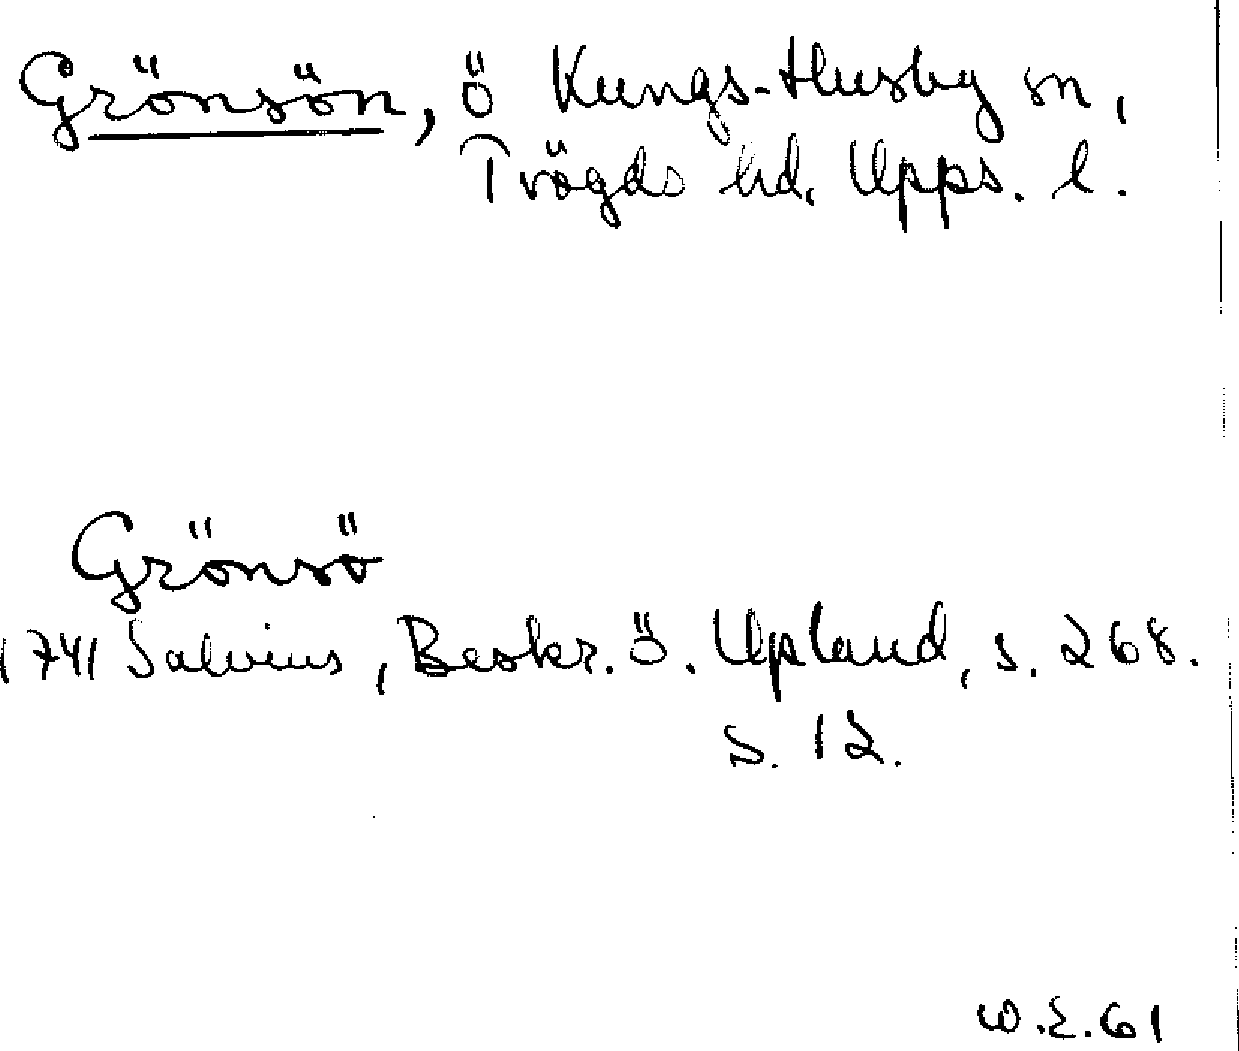 Grönsön, ö Kungs-Husby sn,
Trögds hd, Upps. l.
Grönsö
1741 Salvius, Beskr. ö. Upland, s. 268.
s. 12.
W.E.61